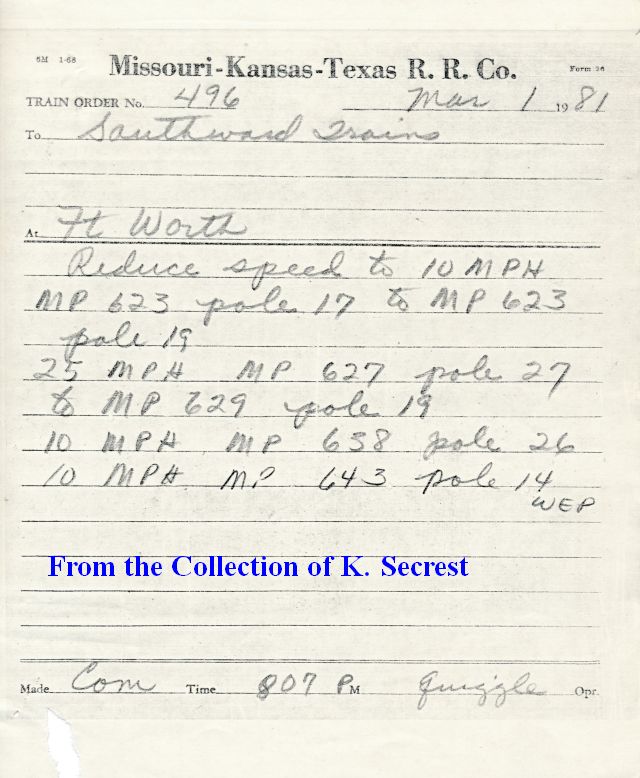 6M 1-68 Missouri-Kansas-Texas R. R. Co. Form 26
TRAIN ORDER No. 496 Mar 1 1981
To Southward Trains
At Ft Worth
Reduce speed to 10 MPH
MP 623 pole 17 to MP 623
pole 19
25 MPH MP 627 pole 27
to MP 629 pole 19
10 MPH MP 638 pole 26
10 MPH MP 643 pole 14
WEP
From the Collection of K. Secrest
Made Com Time 807 PM Quiggle Opr.